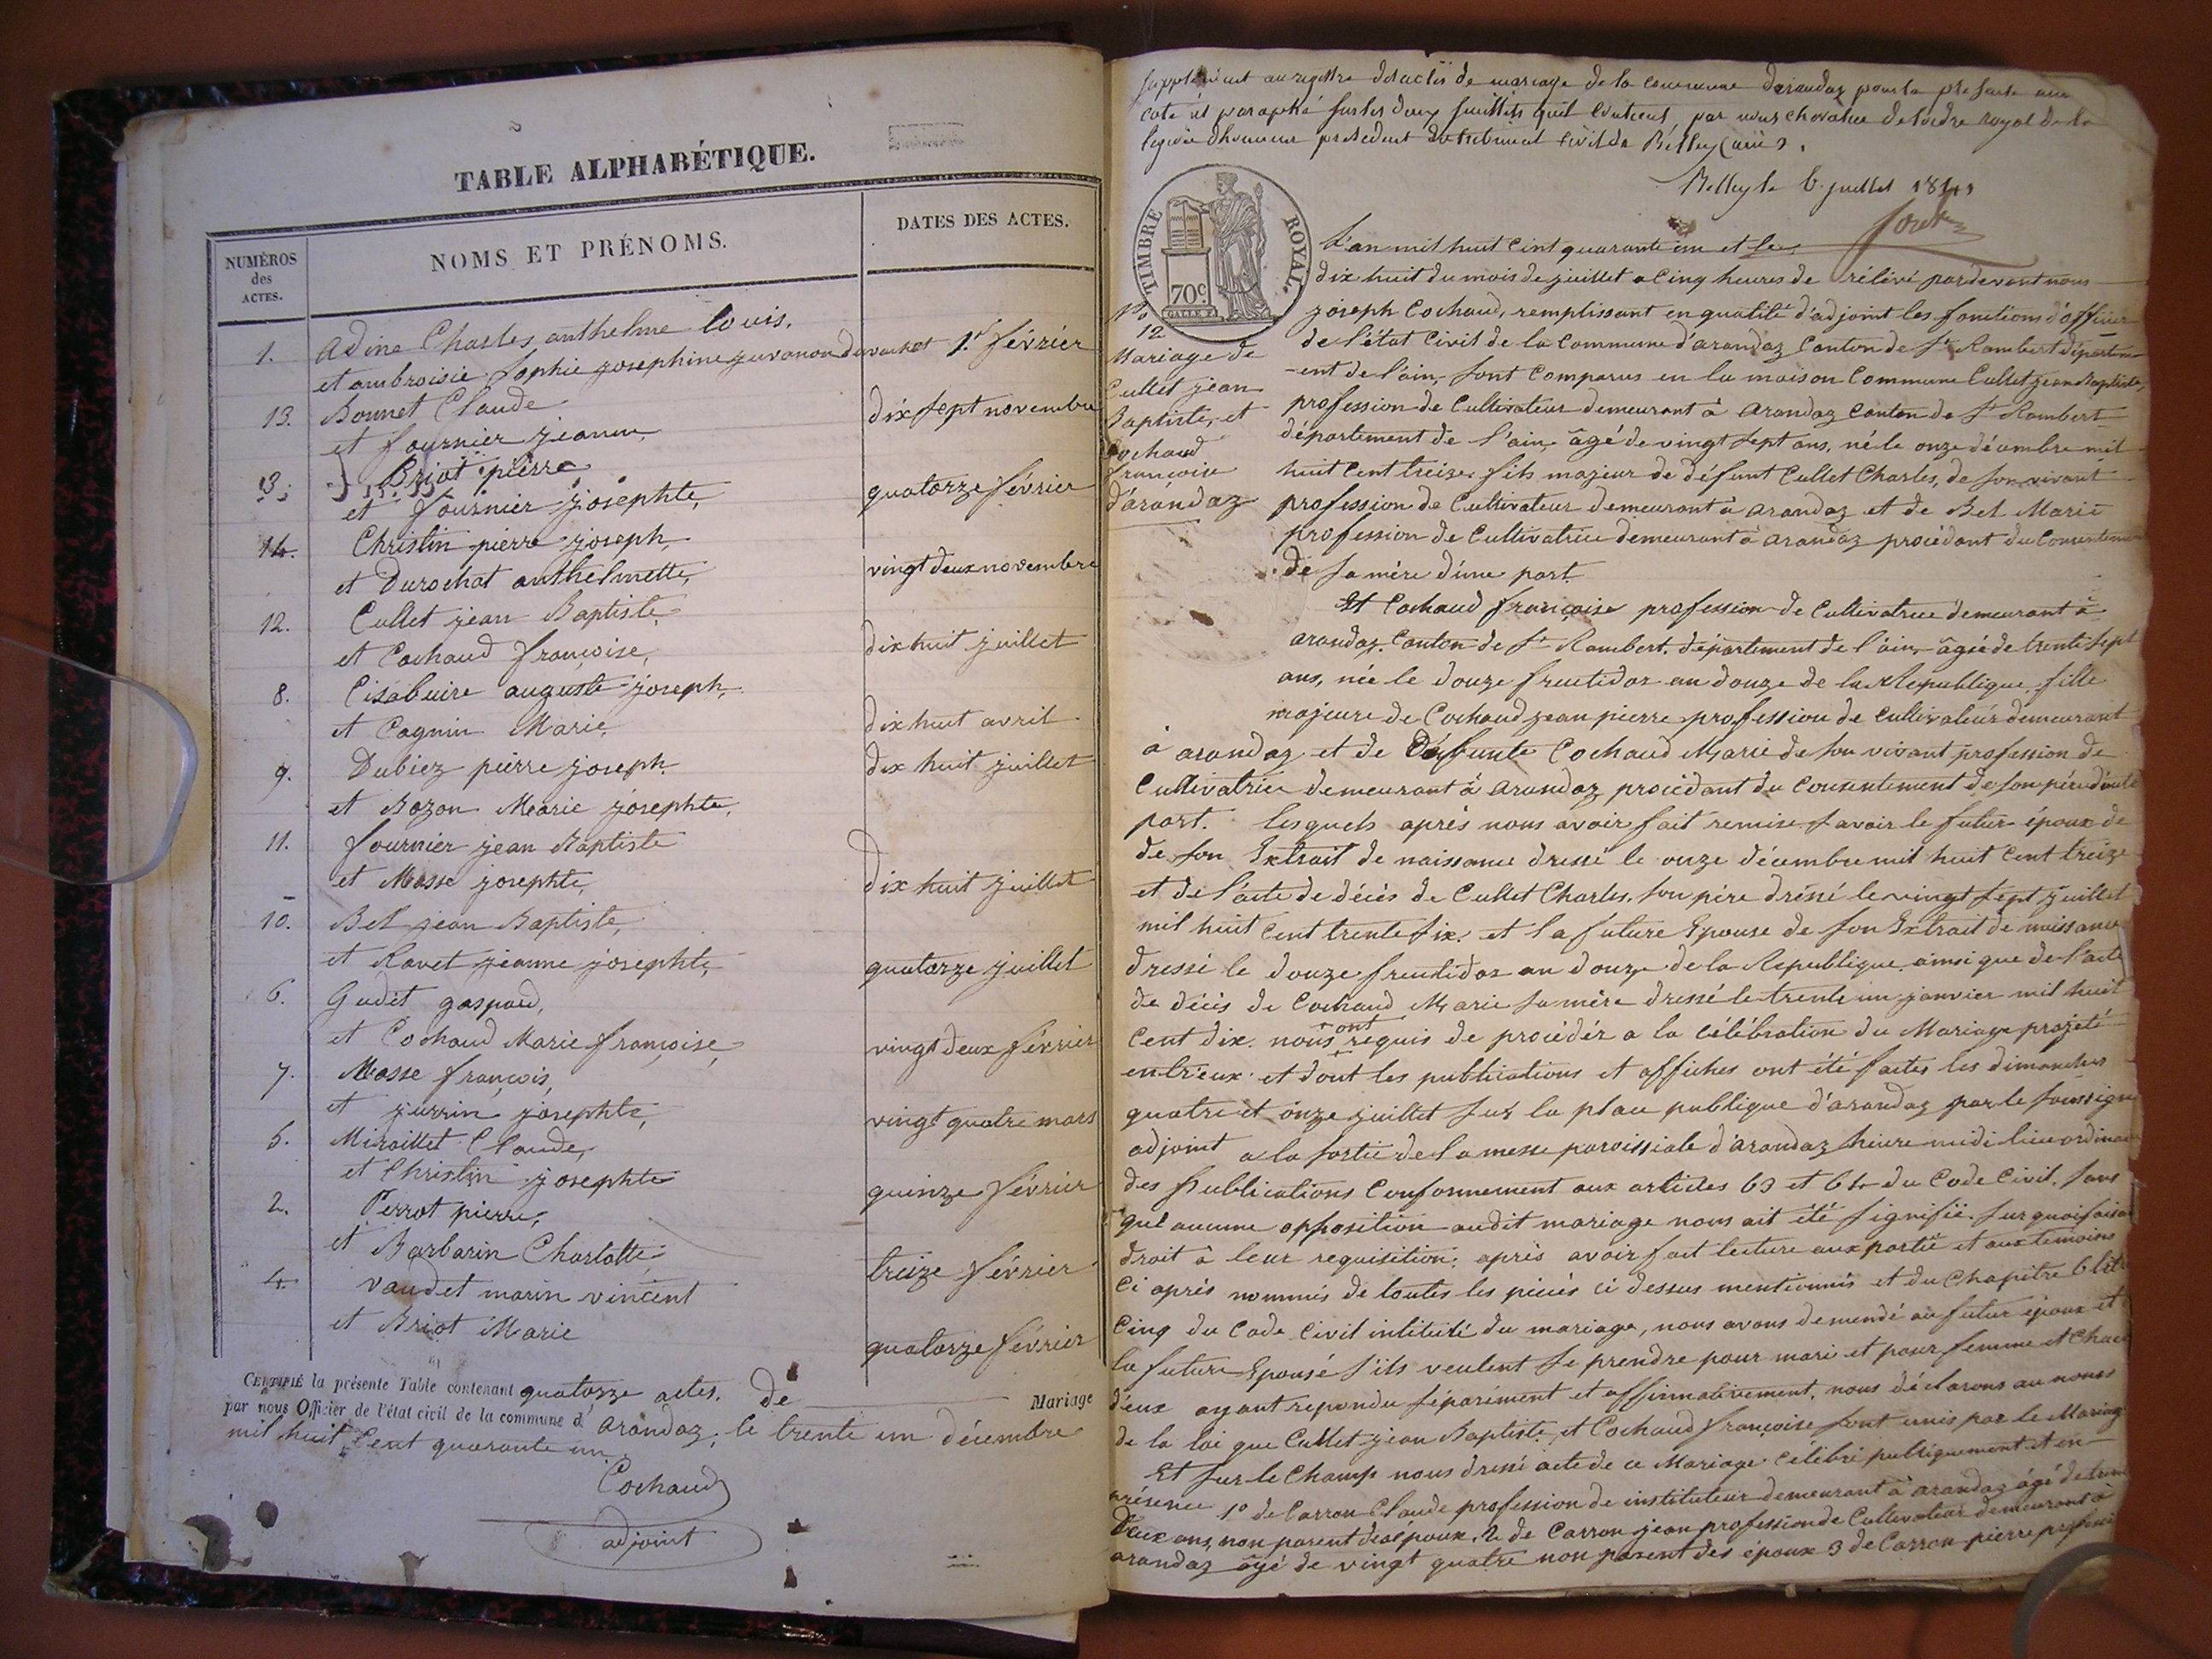 TABLE ALPHABÉTIQUE.
NUMÉROS
des
ACTES.
NOMS ET PRÉNOMS.
DATES DES ACTES.
1. Adine Charles anthelme louis,
et ambroisie Sophie josephine juvanon duvachat 1.er février
13. Bonnet Claude dix sept novembre
et fournier jeanne,
3. Briot pierre
et fournier josephte, quatorze février
14. Christin pierre joseph,
et Durochat anthelmette, vingt deux novembre
12. Cullet jean Baptiste,
et Cochaud françoise, dix huit juillet
8. Cisabuire auguste joseph,
et Cagnin Marie, dix huit avril
9. Dubiez pierre joseph. dix huit juillet
et Bozon Marie josephte,
11. fournier jean Baptiste
et Masse josephte, dix huit juillet
10. Bel jean Baptiste,
et Ravet jeanne josephte, quatorze juillet
6. Gudet gaspard,
et Cochaud Marie françoise, vingt deux février
7. Masse françois,
et jurrin josephte, vingt quatre mars
5. Miraillet Claude,
et Christin josephte quinze février
2. Perrot pierre,
et Barbarin Charlotte, treize février
4. Vaudet marin vincent
et Briot Marie quatorze février
CERTIFIÉ la présente Table contenant quatorze actes. de Mariage
par nous Officier de l'état civil de la commune d'arandaz, le trente un décembre
mil huit cent quarante un
Cochaud
adjoint
Supplément au registre des actes de mariage de la commune d'arandaz pour la présente année
coté et paraphé sur les deux feuillets qu'il contient, par nous chevalier de l'ordre royal de la
legion d'honneur président du tribunal civil de Belley (ain).
Belley le 6 juillet 1841
TIMBRE ROYAL.
70c
N.o
12
Mariage de
Cullet jean
Baptiste, et
Cochaud
françoise
d'arandaz
L'an mil huit cent quarante un et le
dix huit du mois de juillet a cinq heures de rélévé pardevant nous
joseph Cochaud, remplissant en qualité d'adjoint les fonctions d'officier
de l'état Civil de la Commune d'arandaz Canton de St Rambert départem-
-ent de l'ain, sont comparus en la maison Commune Cullet jean Baptiste,
profession de Cultivateur demeurant à arandaz canton de St Rambert
département de l'ain, âgé de vingt sept ans, né le onze décembre mil
huit cent treize, fils majeur de défunt Cullet Charles, de son vivant
profession de Cultivateur demeurant à arandaz et de Bel Marie
profession de Cultivatrice demeurant à arandaz procédant du Consentement
de sa mère d'une part.
Et Cochaud françoise profession de Cultivatrice demeurant à
arandaz, Canton de St Rambert, département de l'ain, âgée de trente sept
ans, née le douze fructidor an douze de la République, fille
majeure de Cochaud jean pierre profession de cultivateur demeurant
à arandaz et de défunte Cochaud Marie de son vivant profession de
Cultivatrice demeurant à arandaz procédant du consentement de son père d'autre
part. lesquels aprés nous avoir fait remise savoir le futur époux de
de son Extrait de naissance dressé le onze décembre mil huit cent treize
et de l'acte de décés de Cullet Charles, son père dréssé le vingt sept juillet
mil huit cent trente six. et la future Epouse de son Extrait de naissance
dressé le douze fructidor an douze de la Republique, ainsi que de l'acte
de décés de Cochaud Marie sa mère dressé le trente un janvier mil huit
cent dix. nous ont requis de procédér a la célébration du Mariage projeté
entr'eux et dont les publications et affiches ont été faites les dimanches
quatre et onze juillet sur la place publique d'arandaz par le soussigné
adjoint a la sortie de la messe paroissiale d'arandaz heure midi lieu ordinaire
des Publications Conformement aux articles 63 et 64 du Code Civil. sans
qu'aucune opposition audit mariage nous ait été signifié. sur quoi faisant
droit à leur requisition; après avoir fait lecture aux partie et aux temoins
ci après nommés de toutes les pièces ci dessus mentionnés et du Chapitre 6 titre
Cinq du Code Civil intitulé du mariage, nous avons demandé au futur époux et
la future Epouse s'ils veulent se prendre pour mari et pour femme et chacun
d'eux ayant repondu séparément et affirmativement, nous déclarons au noms
de la loi que Cullet jean Baptiste, et Cochaud françoise sont unis par le Mariage
Et sur le Champ nous dressé acte de ce Mariage célébré publiquement et en
présence 1o de Carron Claude profession de instituteur demeurant à arandaz âgé de trente
deux ans, non parent des époux, 2 de Carron jean profession de Cultivateur demeurant à
arandaz âgé de vingt quatre non parent des époux 3 de Carron pierre profession